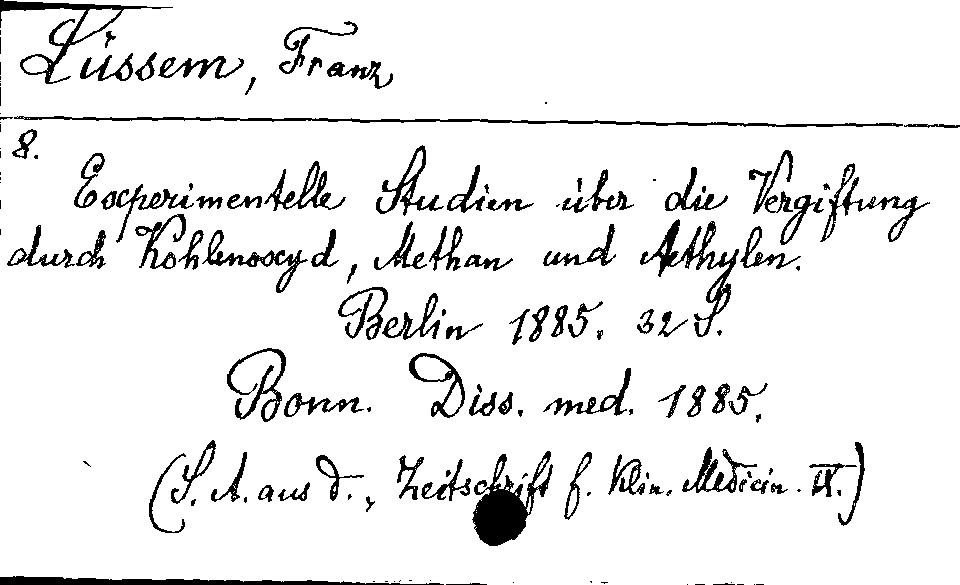 Lüssem, Franz
8.
Experimentelle Studien über die Vergiftung
durch Kohlenoxyd, Methan und Aethylen.
Berlin 1885. 32 S.
Bonn. Diss. med. 1885.
(S. A. aus d., Zeitschrift f. klin. Medicin. IX.)